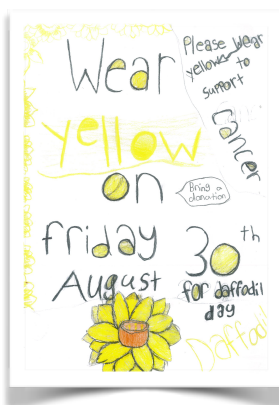 Wear
yellow
on
friday
August
30th
for daffodil
day
Please wear
yellow to
support
cancer
Bring a
donation
Daffodil